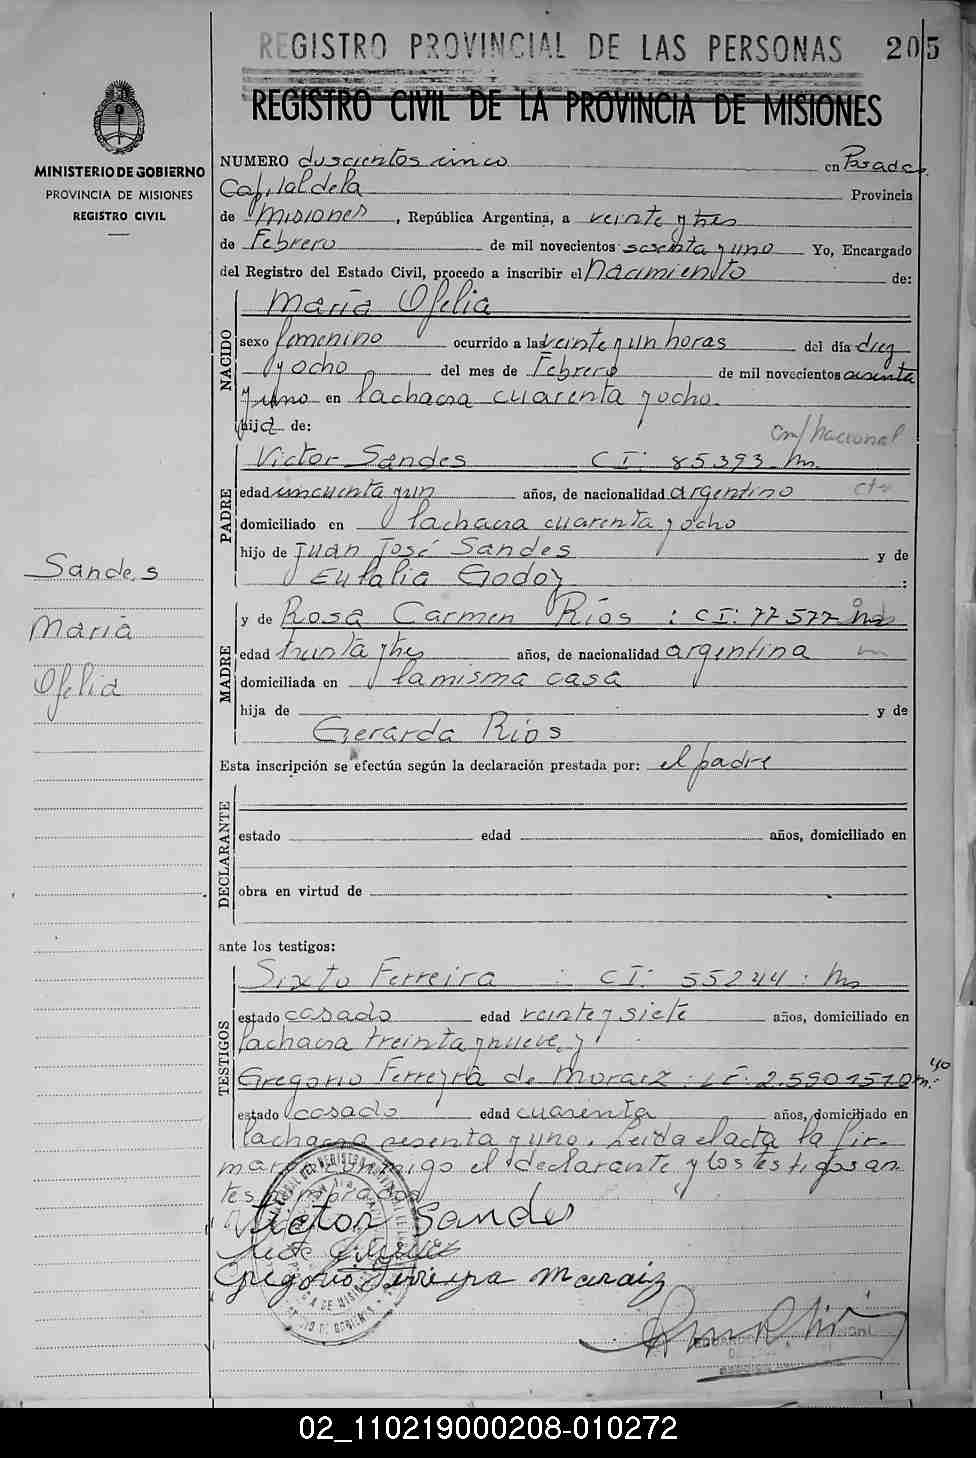 REGISTRO PROVINCIAL DE LAS PERSONAS 205
REGISTRO CIVIL DE LA PROVINCIA DE MISIONES
MINISTERIO DE GOBIERNO
PROVINCIA DE MISIONES
REGISTRO CIVIL
NUMERO duscientos cinco en Posadas
Capital de la Provincia
de Misiones, República Argentina, a veinte y tres
de Febrero de mil novecientos sesenta y uno Yo, Encargado
del Registro del Estado Civil, procedo a inscribir el Nacimiento de:
NACIDO
María Ofelia
sexo femenino ocurrido a las veinte y un horas del día diez
y ocho del mes de Febrero de mil novecientos sesenta
y uno en la chacra cuarenta y ocho.
hija de:
c/nacional
PADRE
Victor Sandes CI: 85393 Mn.
edad cincuenta y un años, de nacionalidad argentino
domiciliado en la chacra cuarenta y ocho
hijo de Juan José Sandes y de
Eulalia Godoy :
Sandes
María
Ofelia
MADRE
y de Rosa Carmen Ríos : CI: 77577
edad treinta y tres años, de nacionalidad argentina
domiciliada en la misma casa
hija de y de
Gerarda Ríos
Esta inscripción se efectúa según la declaración prestada por: el padre
DECLARANTE
estado edad años, domiciliado en
obra en virtud de
ante los testigos:
TESTIGOS
Sixto Ferreira : CI: 55244: Mn
estado casado edad veinte y siete años, domiciliado en
la chacra treinta y nueve, y
Gregorio Ferreyra de Moraiz: LE: 2.5901510 m: 40
estado casado edad cuarenta años, domiciliado en
la chacra sesenta y uno. Leída el acta la fir-
man conmigo el declarante y los testigos an-
tes nombrados
Victor Sandes
Gregorio Ferreyra Moraiz
02_110219000208-010272